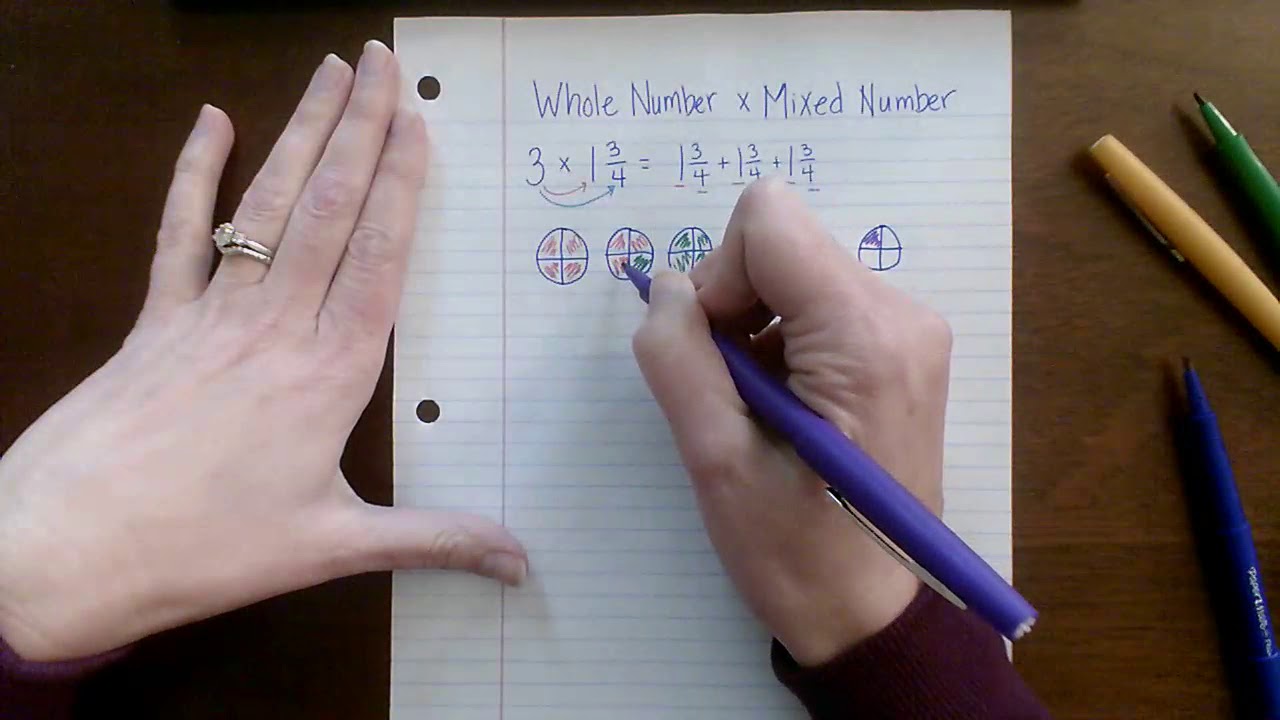 Whole Number x Mixed Number
3 x 1 3/4 = 1 3/4 + 1 3/4 + 1 3/4
Paper Mate